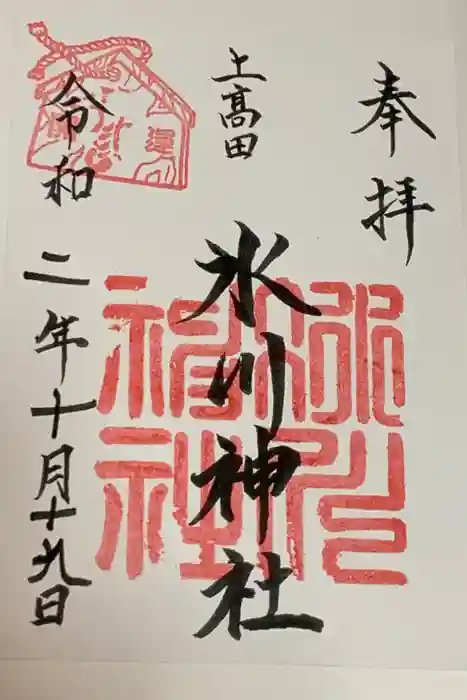 奉拝
上高田
氷川神社
令和二年十月十九日